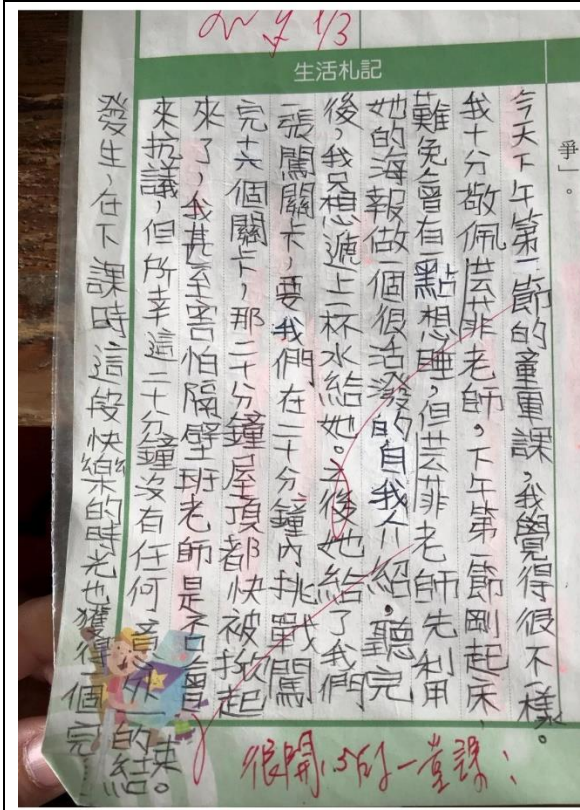 1/3
生活札記
爭」。
今天下午第一節的童軍課,我覺得很不一樣。
我十分敬佩芸菲老師,下午第一節剛起床、
難免會有一點想睡,但芸菲老師先利用
她的海報做一個很活潑的自我介紹,聽完
後,我只想遞上一杯水給她。之後她給了我們
一張闖關卡,要我們在二十分鐘內挑戰闖
完十六個關卡,那二十分鐘屋頂都快被掀起
來了,我甚至害怕隔壁班老師是否會
來抗議,但所幸這二十分鐘沒有任何意外
發生,在下課時這段快樂的時光也獲得一個完
的結
。
很開心的一堂課: